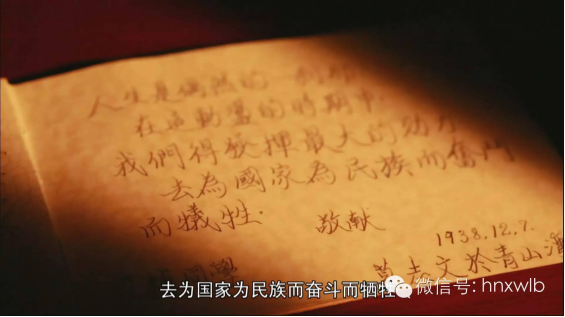 人生是偶然的一
在這動盪的時期中
我們得發揮最大的
去為國家為民族而奮鬥
而犧牲. 敬献
1938.12.7.
同學 文於青山
去为国家为民族而奋斗而牺牲
微信号: hnxwlb